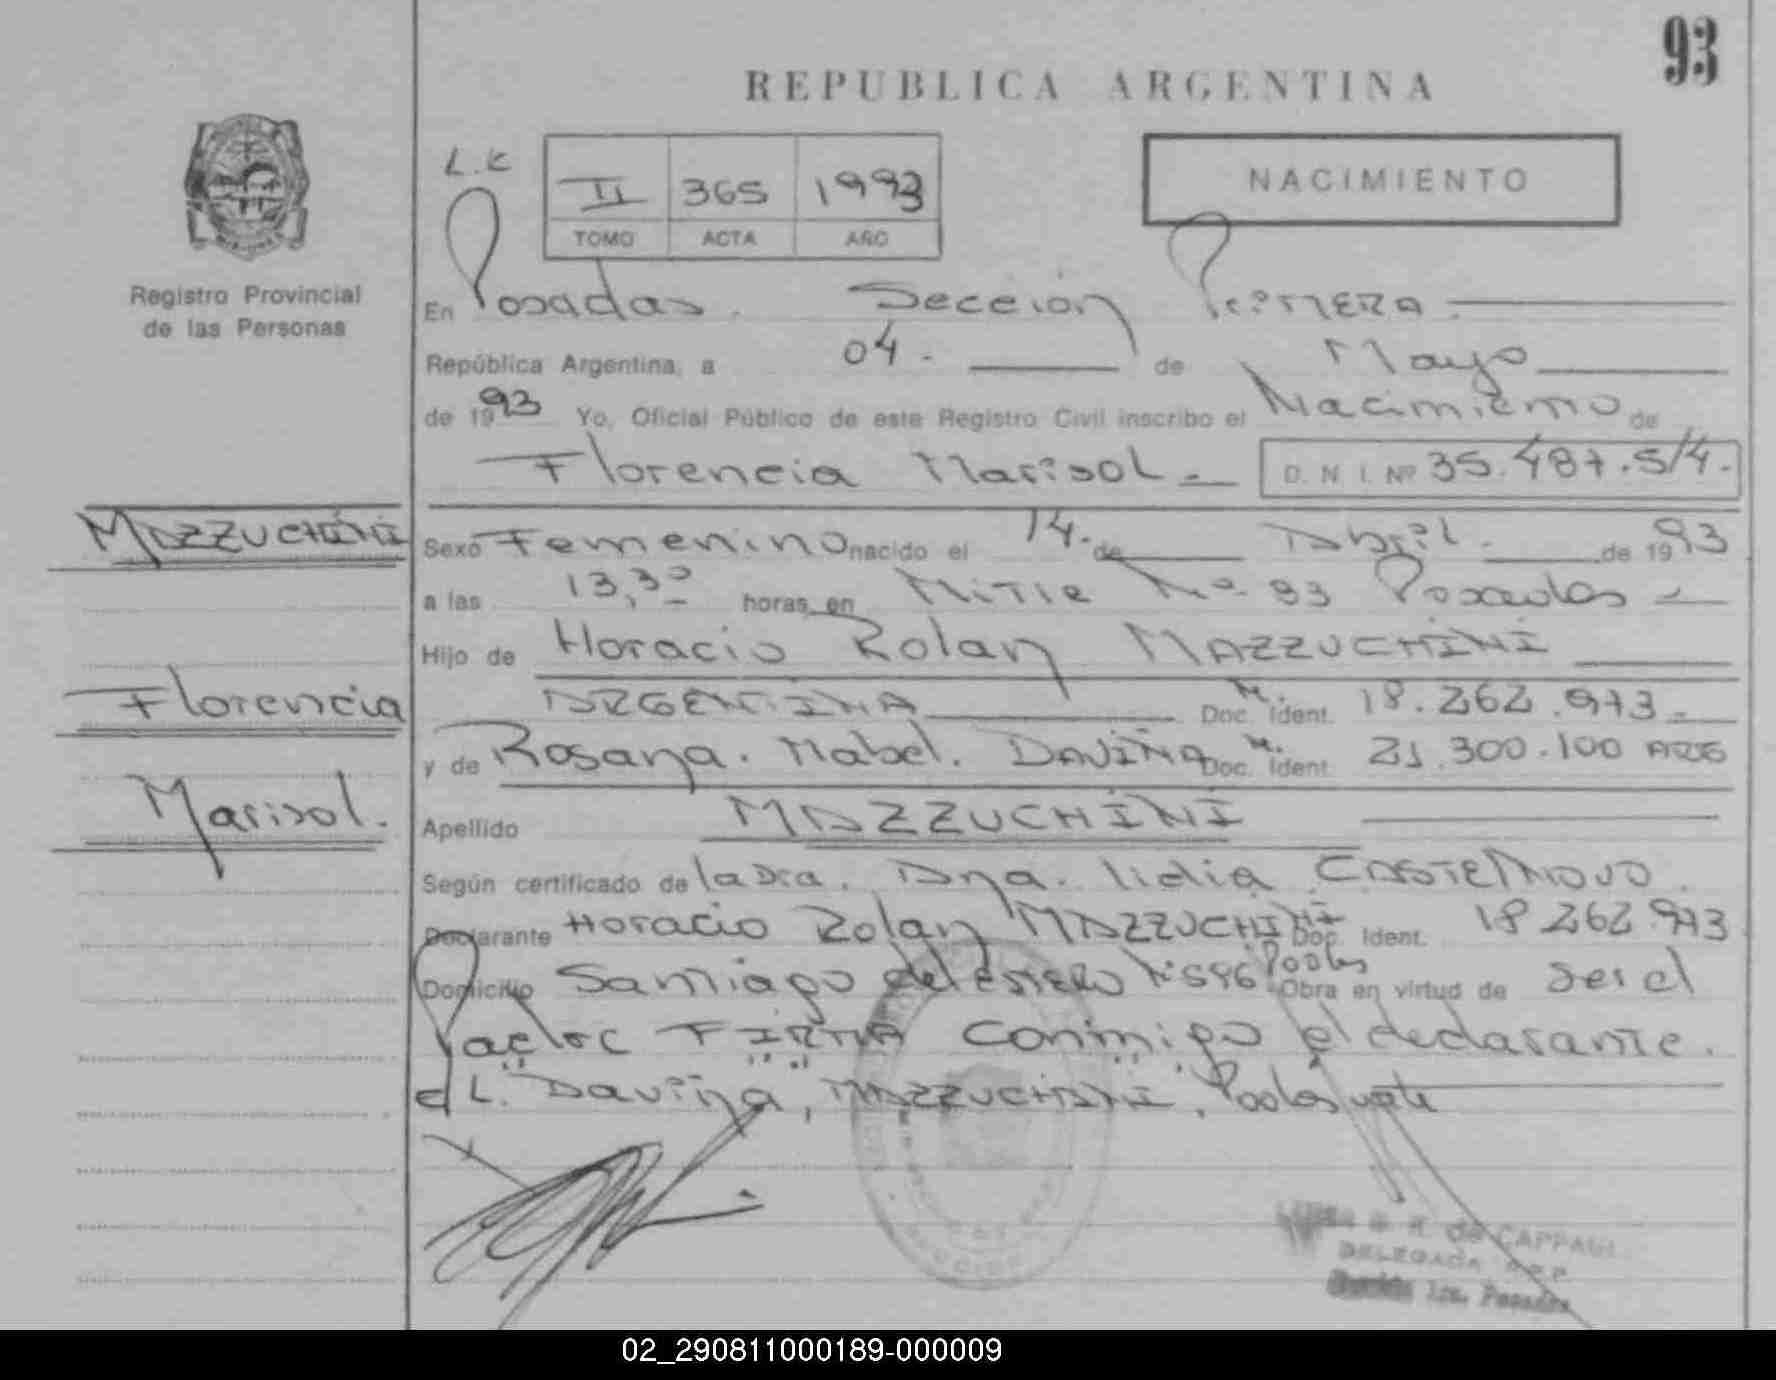 93
REPUBLICA ARGENTINA
L.C
II 365 1993
TOMO ACTA AÑO
NACIMIENTO
Registro Provincial
de las Personas
En Posadas. Sección Primera
República Argentina, a 04. de Mayo
de 1993 Yo, Oficial Público de este Registro Civil inscribo el Nacimiento de
Florencia Marisol. D. N. I. Nº 35.487.514.
MAZZUCHINI
Sexo Femenino nacido el 14. de Abril. de 1993
a las 13,30 horas en Mitre Nº 93 Posadas
Hijo de Horacio Rolan MAZZUCHINI
Florencia
ARGENTINA Doc. Ident. M. 18.262.973.
y de Rosana. Mabel. DAVIÑA Doc. Ident. M. 21.300.100 ARG
Marisol.
Apellido MAZZUCHINI
Según certificado de la Dra. Ana. Lidia CASTELNOVO.
Declarante Horacio Rolan MAZZUCHINI Doc. Ident. 18.262.973
Domicilio Santiago del Estero Nº 596 Pdas Obra en virtud de ser el
Padre FIRMA conmigo el declarante.
el L. "Daviña", "MAZZUCHINI", Pdas vale
de CAPPAGLI
DELEGADA R.P.P.
1ra. Posadas
02_290811000189-000009